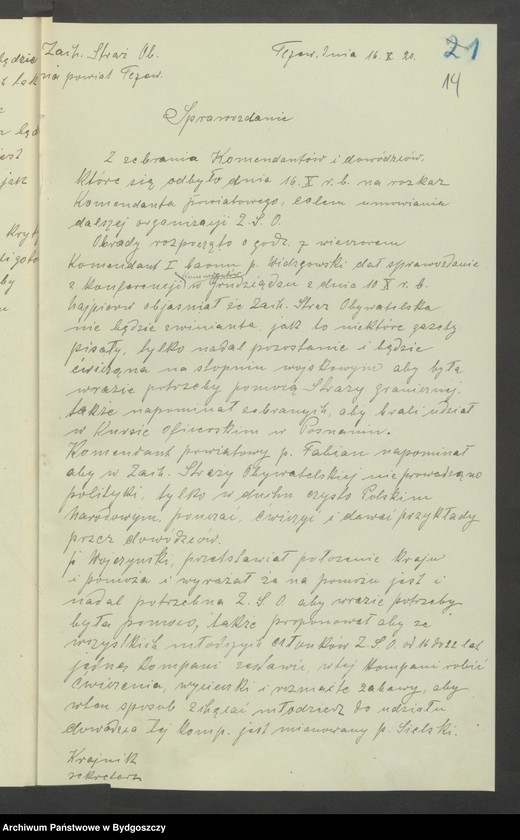 Zach. Straż Ob.
na powiat Tczew.
Tczew, dnia 16 X 20.
21
14
Sprawozdanie
Z zebrania Komendantów i dowódzców,
które się odbyło dnia 16. X r. b. na rozkaz
Komendanta powiatowego, celem umowiania
dalszej organizacji Z. S. O.
Obrady rozpoczęto o godz. 7 wieczorem
Komendant I baonu p. Widzgowski dał sprawozdanie
z Konferencji w Grudziądzu z dnia 10 X r. b.
Najpierw objasniał że Zach. Straż Obywatelska
nie będzie zwinianta, jak to niektóre gazety
pisały, tylko nadal pozostanie i będzie
ćwiczona na stopniu wojskowym aby była
wrazie potrzeby pomocą Straży granicznej,
także napominał zebranych, aby brali udział
w Kursie oficerskim w Poznaniu.
Komendant powiatowy p. Fabian napominał
aby w Zach. Straży Obywatelskiej nie prowadzono
polityki, tylko w duchu czysto Polskim
Narodowym, pouczać, ćwiczyć i dawać przykłady
przez dowódzców.
p. Wojczynski, przedstawiał położenie Kraju
i pomoza i wyrażał że na pomożu jest i
nadal potrzebna Z. S. O. aby wrazie potrzeby
była pomoco, także proponował aby ze
wszystkich młodszych członków Z. S. O. od 16 do 22 lat
jedną Kompani zestawić, w tej Kompani robić
ćwiczenia, wycieczki i rozmaite zabawy, aby
w ten sposób zachęcać młodzież do udziału
dowódzca tej Komp. jest mianowany p. Sielski.
Krajnik
sekretarz
Archiwum Państwowe w Bydgoszczy